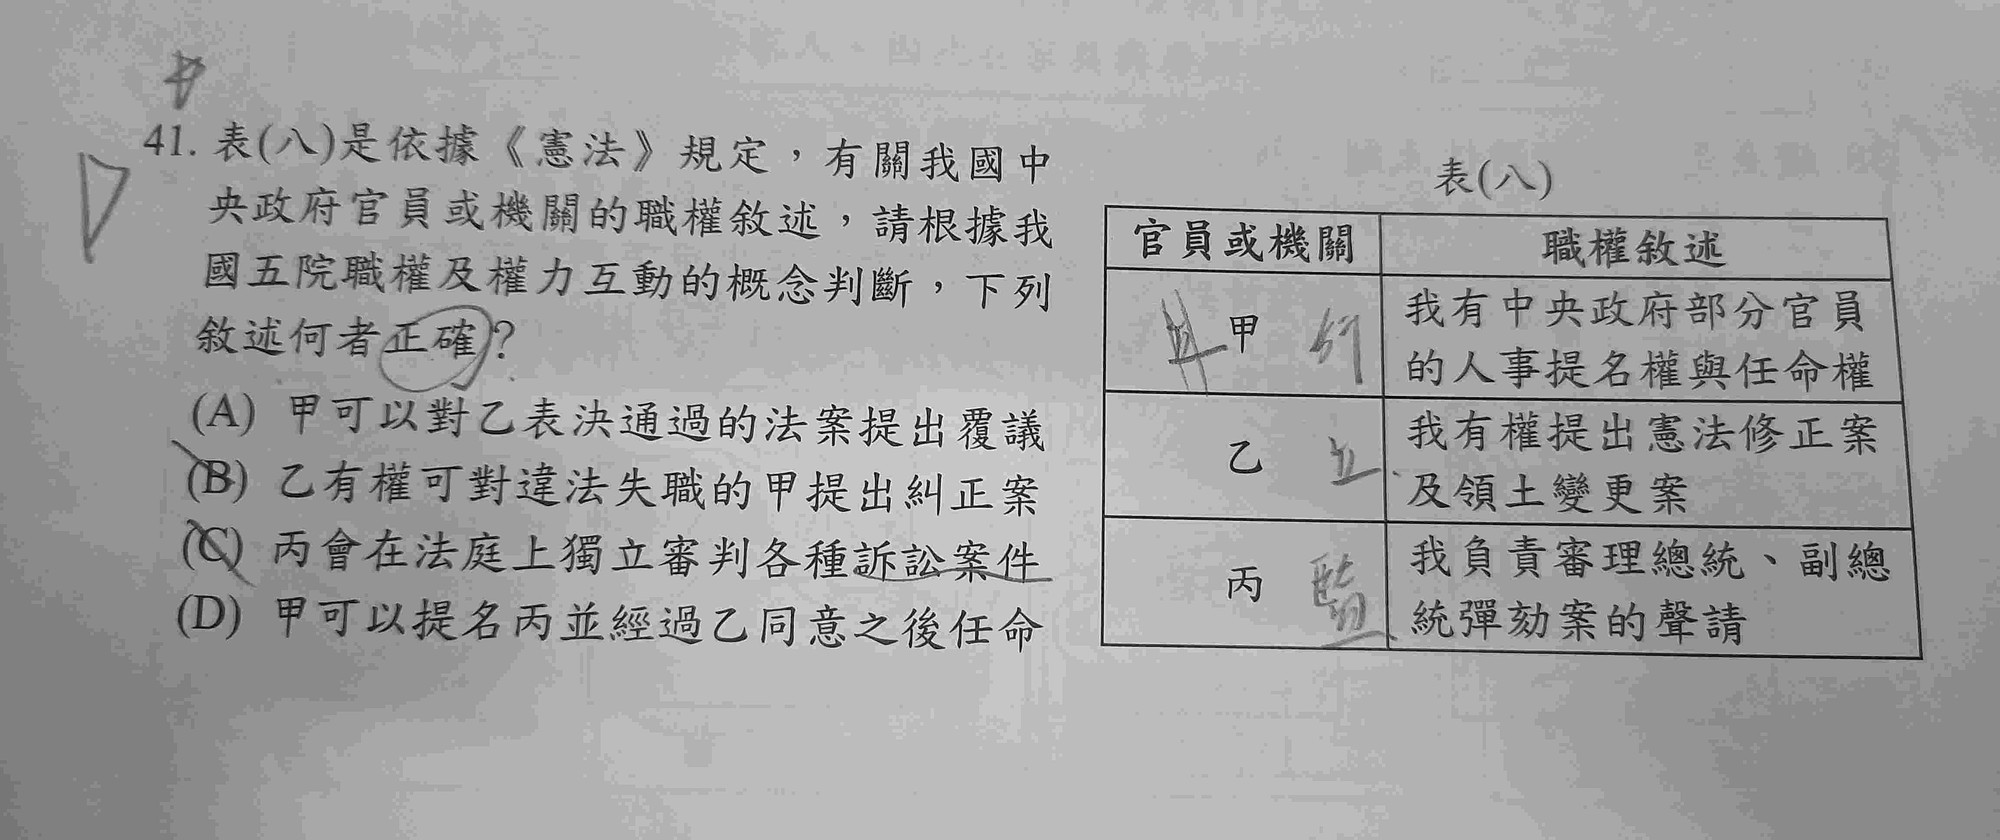 41. 表(八)是依據《憲法》規定，有關我國中
央政府官員或機關的職權敘述，請根據我
國五院職權及權力互動的概念判斷，下列
敘述何者正確？
(A) 甲可以對乙表決通過的法案提出覆議
(B) 乙有權可對違法失職的甲提出糾正案
(C) 丙會在法庭上獨立審判各種訴訟案件
(D) 甲可以提名丙並經過乙同意之後任命
D
表(八)
官員或機關 職權敘述
甲 行 我有中央政府部分官員
的人事提名權與任命權
乙 立 我有權提出憲法修正案
及領土變更案
丙 監 我負責審理總統、副總
統彈劾案的聲請